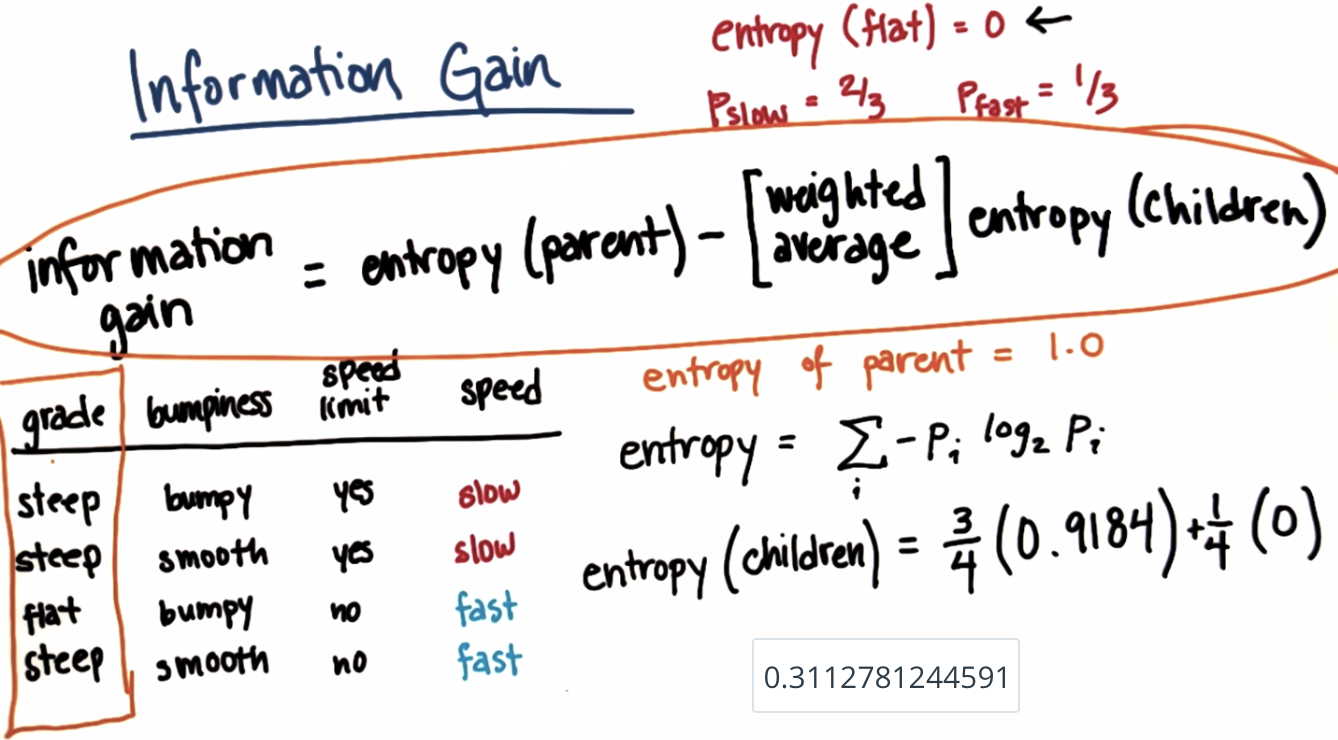 Information Gain
entropy (flat) = 0 ←
Pslow = 2/3 Pfast = 1/3
information gain = entropy (parent) - [weighted average] entropy (children)
grade bumpiness speed limit speed
steep bumpy yes slow
steep smooth yes slow
flat bumpy no fast
steep smooth no fast
entropy of parent = 1.0
entropy = ∑i -Pi log₂ Pi
entropy (children) = 3/4 (0.9184) + 1/4 (0)
0.3112781244591